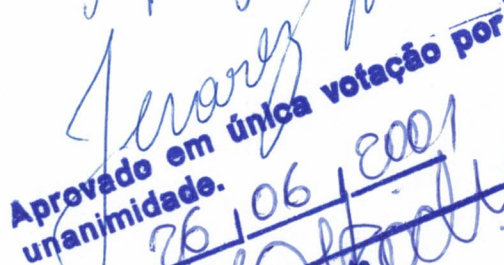 Aprovado em única votação por
unanimidade.
26 / 06 / 2001